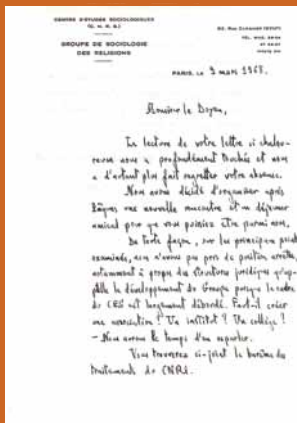 CENTRE D'ÉTUDES SOCIOLOGIQUES
(C. N. R. S.)
GROUPE DE SOCIOLOGIE
DES RELIGIONS
82, Rue Cardinet (XVII)
PARIS, LE 9 mars 1968.
Monsieur le Doyen,
La lecture de votre lettre si chaleu-
reuse nous a profondément touchés et nous
a d'autant plus fait regretter votre absence.
Nous avons décidé d'organiser après
Pâques une nouvelle rencontre et un déjeuner
amical pour que vous puissiez être parmi nous.
De toute façon, sur les principaux points
examinés, nous n'avons pas pris de position arrêtée,
notamment à propos des structures juridiques
le développement du Groupe puisque le cadre
du CES est largement débordé. Faut-il créer
une association ? Un institut ? Un collège ?
- Nous avons le temps d'en reparler.
Vous trouverez ci-joint le barème des
traitements du CNRS.